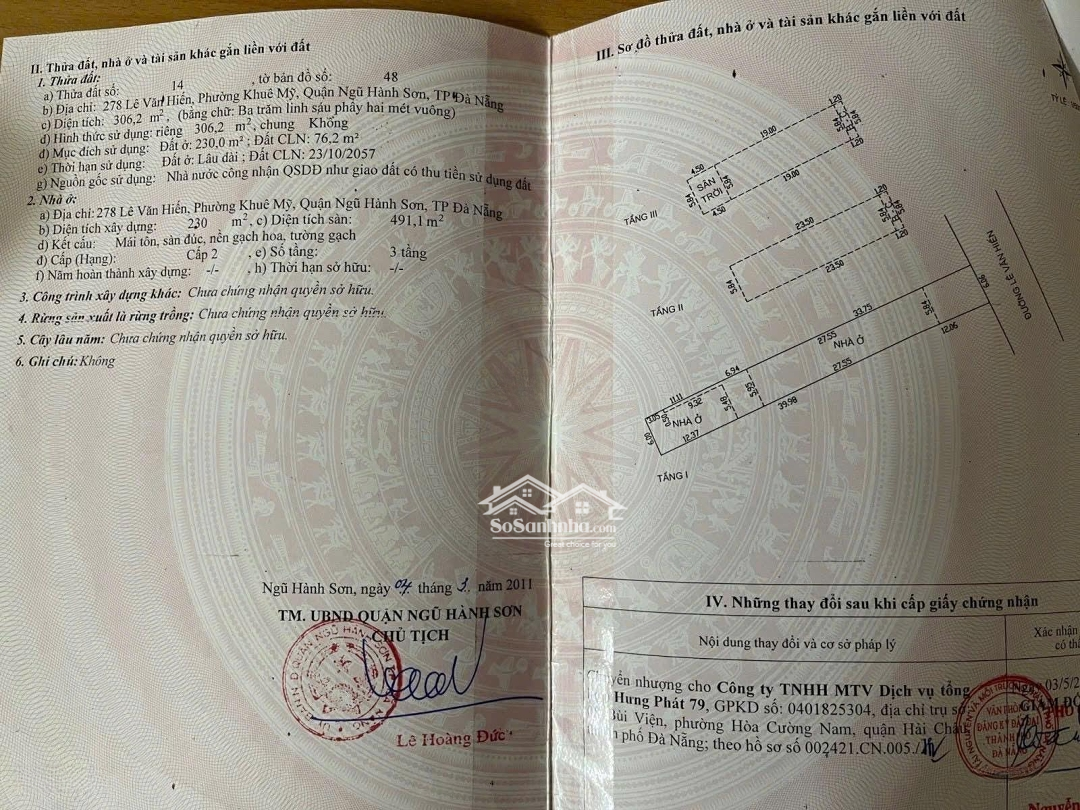 II. Thửa đất, nhà ở và tài sản khác gắn liền với đất
1. Thửa đất:
a) Thửa đất số: 14 , tờ bản đồ số: 48
b) Địa chỉ: 278 Lê Văn Hiến, Phường Khuê Mỹ, Quận Ngũ Hành Sơn, TP Đà Nẵng
c) Diện tích: 306,2 m², (bằng chữ: Ba trăm linh sáu phẩy hai mét vuông)
d) Hình thức sử dụng: riêng 306,2 m², chung Không
đ) Mục đích sử dụng: Đất ở: 230,0 m² ; Đất CLN: 76,2 m²
e) Thời hạn sử dụng: Đất ở: Lâu dài ; Đất CLN: 23/10/2057
g) Nguồn gốc sử dụng: Nhà nước công nhận QSDĐ như giao đất có thu tiền sử dụng đất
2. Nhà ở:
a) Địa chỉ: 278 Lê Văn Hiến, Phường Khuê Mỹ, Quận Ngũ Hành Sơn, TP Đà Nẵng
b) Diện tích xây dựng: 230 m², c) Diện tích sàn: 491,1 m²
d) Kết cấu: Mái tôn, sàn đúc, nền gạch hoa, tường gạch
đ) Cấp (Hạng): Cấp 2 , e) Số tầng: 3 tầng
f) Năm hoàn thành xây dựng: -/- , h) Thời hạn sở hữu: -/-
3. Công trình xây dựng khác: Chưa chứng nhận quyền sở hữu.
4. Rừng sản xuất là rừng trồng: Chưa chứng nhận quyền sở hữu.
5. Cây lâu năm: Chưa chứng nhận quyền sở hữu.
6. Ghi chú: Không
Ngũ Hành Sơn, ngày 04 tháng 3 năm 2011
TM. UBND QUẬN NGŨ HÀNH SƠN
CHỦ TỊCH
Lê Hoàng Đức
III. Sơ đồ thửa đất, nhà ở và tài sản khác gắn liền với đất
TỶ LỆ
1.20
19.00
5.84
4.50
SÂN TRỜI
5.84
5.84
19.00
1.20
4.50
TẦNG III
1.20
23.50
5.84
5.84
1.20
5.84
23.50
TẦNG II
ĐƯỜNG LÊ VĂN HIẾN
6.86
33.75
5.84
27.55
NHÀ Ở
12.06
27.55
6.94
11.11
5.92
9.32
5.48
39.98
3.05
0.50
NHÀ Ở
6.00
12.37
TẦNG I
SoSanhnha.com
Great choice for you
IV. Những thay đổi sau khi cấp giấy chứng nhận
Nội dung thay đổi và cơ sở pháp lý
Xác nhận
có th
Chuyển nhượng cho Công ty TNHH MTV Dịch vụ tổng
Hưng Phát 79, GPKD số: 0401825304, địa chỉ trụ sở
Bùi Viện, phường Hòa Cường Nam, quận Hải Châu
phố Đà Nẵng; theo hồ sơ số 002421.CN.005./
03/5/2
GIÁM ĐỐ
VĂN PHÒNG
ĐĂNG KÝ ĐẤT ĐAI
THÀNH
ĐÀ NẴNG
Nguyễn